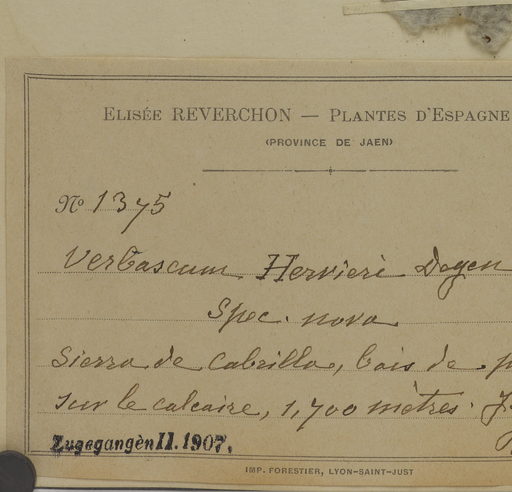 ELISÉE REVERCHON — PLANTES D'ESPAGNE
(PROVINCE DE JAEN)
No 1375
Verbascum Hervieri Degen
Spec. nova
Sierra de Cabrilla, bois de
sur le calcaire, 1,700 mètres.
Zugegangen II. 1907.
IMP. FORESTIER, LYON-SAINT-JUST